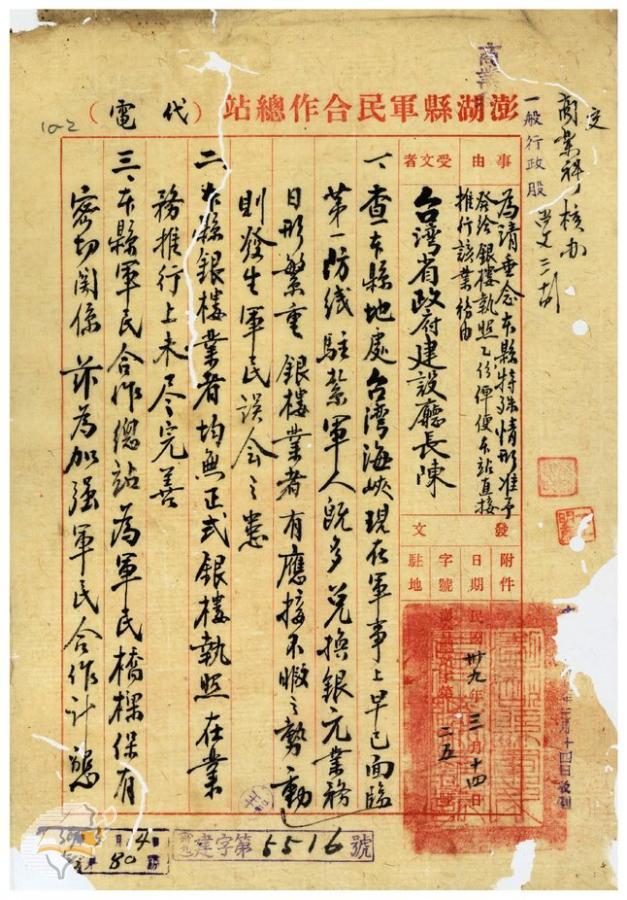 澎湖縣軍民合作總站（代電）
10-2
商業科核办
一般行政股
事由
為請垂念本縣特殊情形准予
發給銀樓執照乙份俾便本站直接
推行該業務由
受文者
台湾省政府建設廳長陳
發文
附件
日期
字號
駐地
民國卅九年三月十四日
二五
一、查本縣地處台湾海峽現在軍事上早已面臨
第一防线駐紮軍人既多兌換銀元業務
日形繁重銀樓業者有應接不暇之勢動
則發生軍民误会之患
二、本縣銀樓業者均無正式銀樓執照在業
務推行上未尽完善
三、本縣軍民合作總站為軍民橋樑保有
密切関係茲為加强軍民合作計懇
建字第5516號